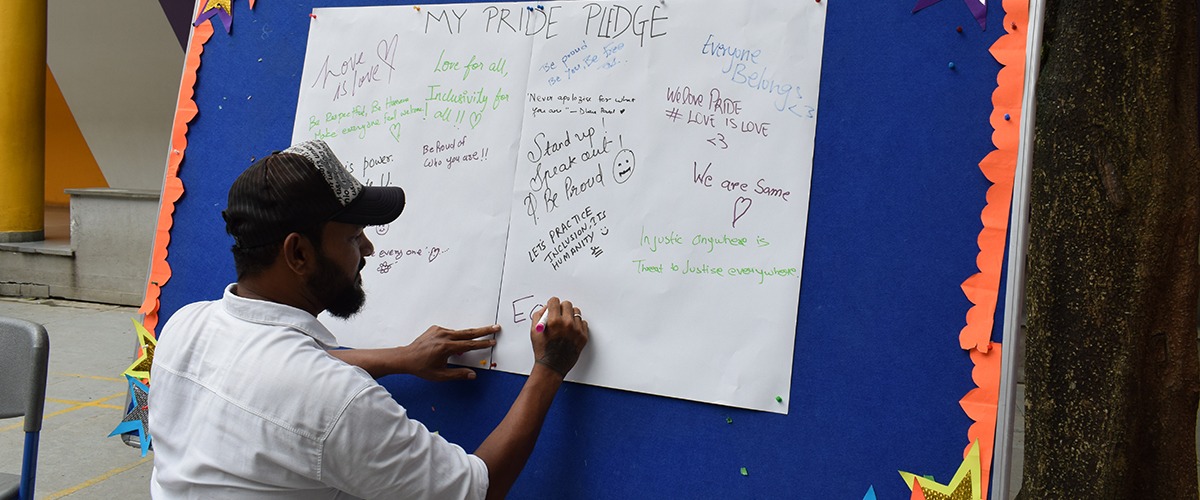 MY PRIDE PLEDGE
Love
is Love
Be Respectful, Be Humane
Make everyone feel welcome!
Love for all,
Inclusivity for
all !!
Be Proud of
Who you are !!
is power.
every one
Be proud
Be You, Be Free
"Never apologise for what
you are" —
Stand up!
Speak out!
& Be Proud
LETS PRACTICE
INCLUSION, ITS
HUMANITY
E
Everyone
Belongs
<3
We Love PRIDE
# LOVE IS LOVE
<3
We are Same
Injustic anywhere is
Threat to Justise everywhere.